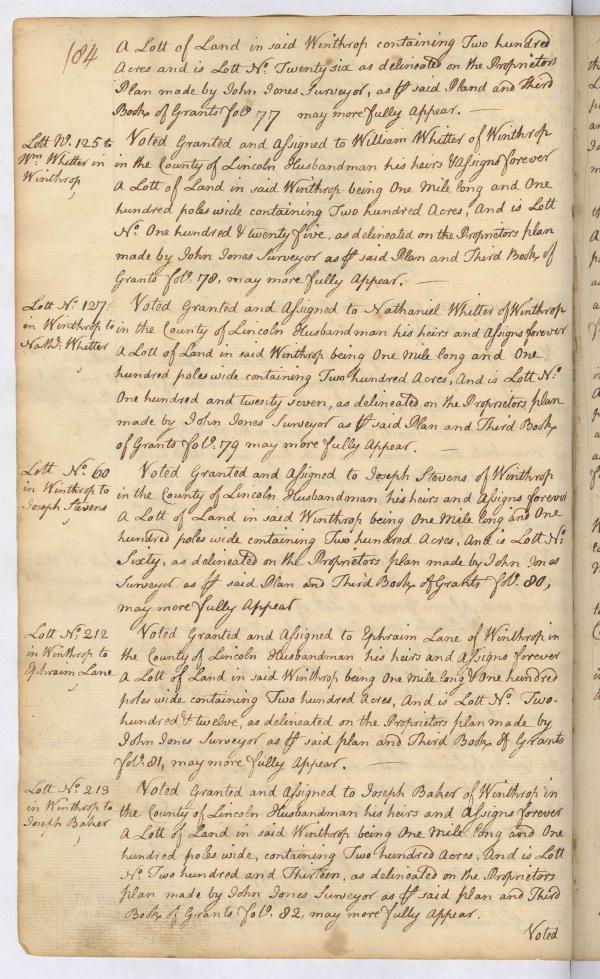 184
A Lott of Land in said Winthrop containing Two hundred
Acres and is Lott No. Twenty six as delineated on the Proprietors
Plan made by John Jones Surveyor, as ⅌ said Pland and Third
Book of Grants fol.o 77 may more fully Appear. —
Lott No. 125 to
Wm. Whitter in
Winthrop
Voted Granted and Assigned to William Whitter of Winthrop
in the County of Lincoln Husbandman his heirs & Assigns forever
A Lott of Land in said Winthrop being One Mile long and One
hundred poles wide containing Two hundred Acres, And is Lott
No. One hundred & twenty five, as delineated on the Proprietors plan
made by John Jones Surveyor as ⅌ said Plan and Third Book of
Grants fol.o 78, may more fully Appear. —
Lott No. 127
in Winthrop to
Nathl. Whitter
Voted Granted and Assigned to Nathaniel Whitter of Winthrop
in the County of Lincoln Husbandman his heirs and Assigns forever
A Lott of Land in said Winthrop being One Mile long and One
hundred poles wide containing Two hundred Acres, And is Lott No.
One hundred and twenty seven, as delineated on the Proprietors plan
made by John Jones Surveyor as ⅌ said Plan and Third Book
of Grants fol.o 79 may more fully Appear. —
Lott No. 60
in Winthrop to
Joseph Stevens
Voted Granted and Assigned to Joseph Stevens of Winthrop
in the County of Lincoln Husbandman his heirs and Assigns forever
A Lott of Land in said Winthrop being One Mile long and One
hundred poles wide containing Two hundred Acres, And is Lott No.
Sixty, as delineated on the Proprietors plan made by John Jones
Surveyor as ⅌ said Plan and Third Book of Grants fol.o 80,
may more fully Appear
Lott No. 212
in Winthrop to
Ephraim Lane
Voted Granted and Assigned to Ephraim Lane of Winthrop in
the County of Lincoln Husbandman his heirs and Assigns forever
A Lott of Land in said Winthrop being One Mile long & One hundred
poles wide containing Two hundred Acres, And is Lott No. Two-
hundred & twelve, as delineated on the Proprietors plan made by
John Jones Surveyor as ⅌ said plan and Third Book of Grants
fol.o 81, may more fully Appear. —
Lott No. 213
in Winthrop to
Joseph Baker
Voted Granted and Assigned to Joseph Baker of Winthrop in
the County of Lincoln Husbandman his heirs and Assigns forever
A Lott of Land in said Winthrop being One Mile long and One
hundred poles wide, containing Two hundred Acres, And is Lott
No. Two hundred and Thirteen, as delineated on the Proprietors
plan made by John Jones Surveyor as ⅌ said plan and Third
Book of Grants fol.o 82, may more fully Appear.
Voted